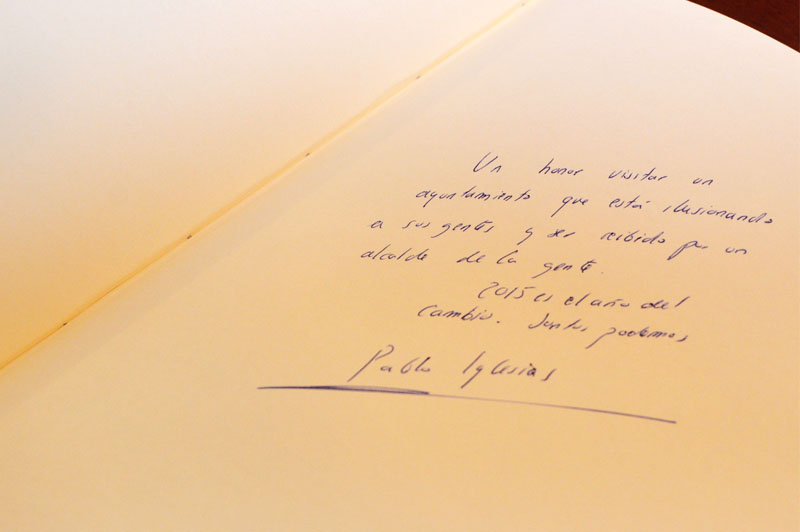 Un honor visitar un
ayuntamiento que está ilusionando
a sus gentes y ser recibido por un
alcalde de la gente.
2015 es el año del
Cambio. Juntos podemos
Pablo Iglesias